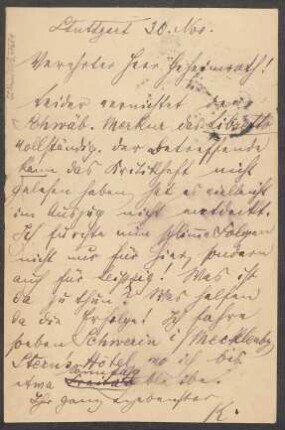 Stuttgart 30. Nov.
Verehrter Herr Geheimrath!
Leider vernichtet der
Schwäb. Merkur das Libretto
vollständig. Der betreffende
kann das Kritikheft nicht
gelesen haben, hat es vielleicht
im Auszug nicht entdeckt.
Ich fürchte nun schlimme Folgen
nicht nur für hier, sondern
auch für Leipzig! Was ist
da zu thun? Was helfen
da die Erfolge! Ich fahre
soeben Schwerin i/ Mecklenbg
Sterns Hôtel, wo ich bis
etwa bleibe.
Ihr ganz ergebenster
K.